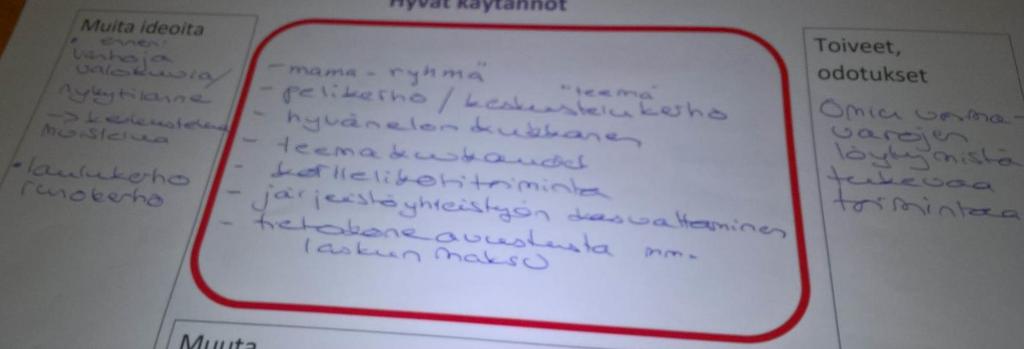 Hyvät käytännöt
Muita ideoita
• ennen:
vanhoja
valokuvia/
nykytilanne
-> keskustelua
muistelua
• laulukerho
runokerho
- mama-ryhmä
"teema"
- pelikerho / keskustelukerho
- hyvänelon kukkanen
- teemakuukaudet
- korttelikotitoiminta
- järjestöyhteistyön kasvattaminen
- tietokoneavustusta mm.
laskun maksu
Toiveet,
odotukset
Omien voima-
varojen
löytymistä
tukevaa
toimintaa
Muuta